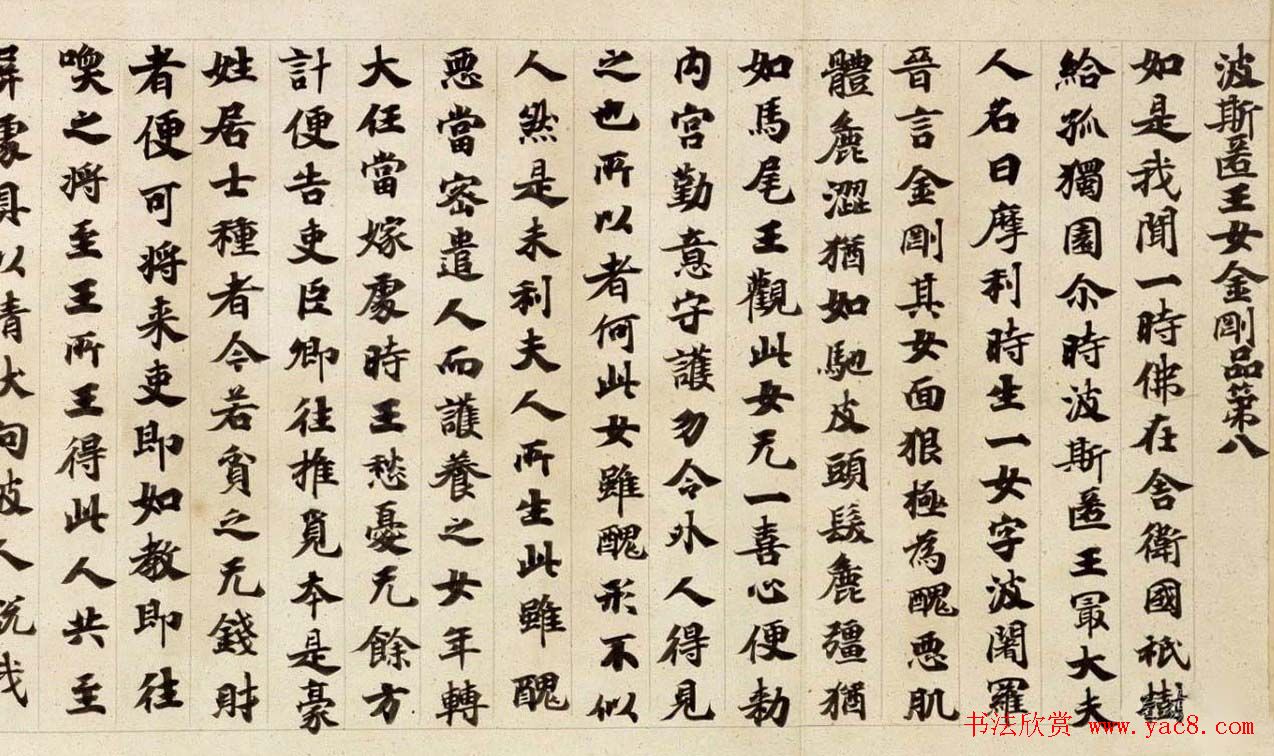 波斯匿王女金剛品第八
如是我聞一時佛在舍衛國祇樹
給孤獨園尒時波斯匿王冣大夫
人名曰摩利時生一女字波闍羅
晉言金剛其女面狠極為醜惡肌
體麁澀猶如馳皮頭髮麁彊猶
如馬尾王觀此女无一喜心便勑
內宮勤意守護勿令外人得見
之也所以者何此女雖醜形不似
人然是末利夫人所生此雖醜
惡當密遣人而護養之女年轉
大任當嫁處時王愁憂无餘方
計便告吏臣卿往推覓本是豪
姓居士種者今若貧之无錢財
者便可將来吏即如教即往
喚之將至王所王得此人共至
屏處具以情狀向彼人說我
書法欣赏 www.yac8.com